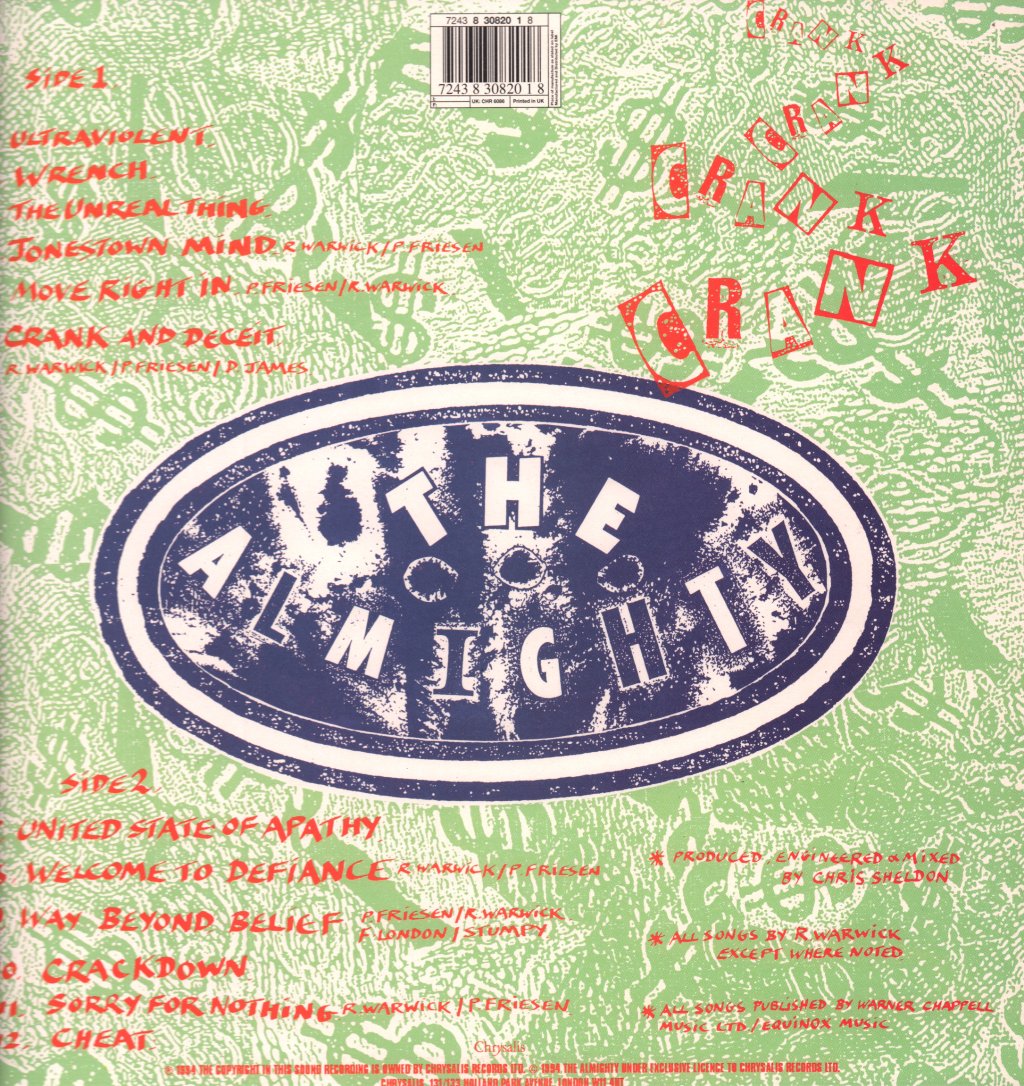 7243 8 30820 1 8
7243 8 30820 1 8
UK: CHR 6086 Printed in UK
CRANK
CRANK
CRANK
CRANK
SIDE 1
ULTRAVIOLENT.
WRENCH.
THE UNREAL THING.
JONESTOWN MIND. R.WARWICK/P.FRIESEN
MOVE RIGHT IN. P.FRIESEN/R.WARWICK.
CRANK AND DECEIT.
R.WARWICK/P.FRIESEN/D.JAMES.
THE
ALMIGHTY
SIDE 2.
UNITED STATE OF APATHY.
WELCOME TO DEFIANCE R.WARWICK/P.FRIESEN
WAY BEYOND BELIEF P.FRIESEN/R.WARWICK
F.LONDON/STUMPY
CRACKDOWN
SORRY FOR NOTHING R.WARWICK/P.FRIESEN
CHEAT.
* PRODUCED ENGINEERED & MIXED
BY CHRIS SHELDON
* ALL SONGS BY R.WARWICK
EXCEPT WHERE NOTED
* ALL SONGS PUBLISHED BY WARNER CHAPPELL
MUSIC LTD/EQUINOX MUSIC
Chrysalis
℗ 1994 THE COPYRIGHT IN THIS SOUND RECORDING IS OWNED BY CHRYSALIS RECORDS LTD. © 1994 THE ALMIGHTY UNDER EXCLUSIVE LICENCE TO CHRYSALIS RECORDS LTD.